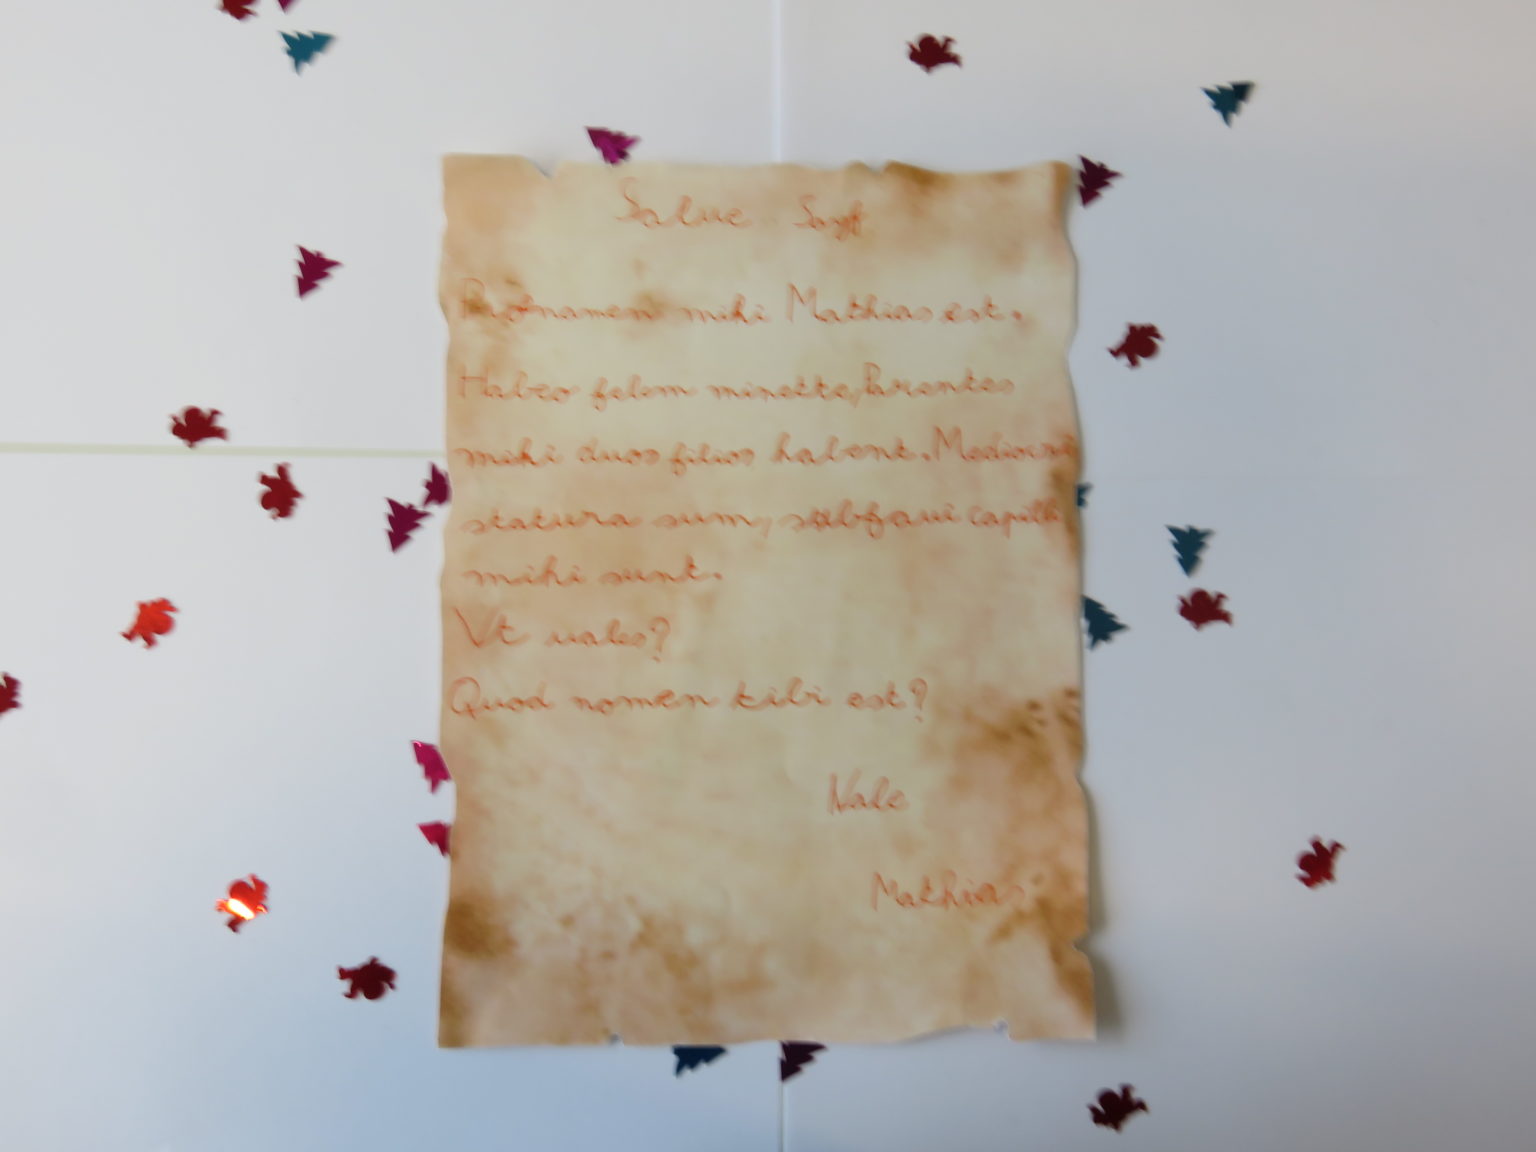 Salue
Praenamen mihi Mathias est.
Habeo felem minette, Parentes
mihi duos filios habent. Mediocri
statura sum, subflaui capilli
mihi sunt.
Vt uales?
Quod nomen tibi est?
Vale
Mathias